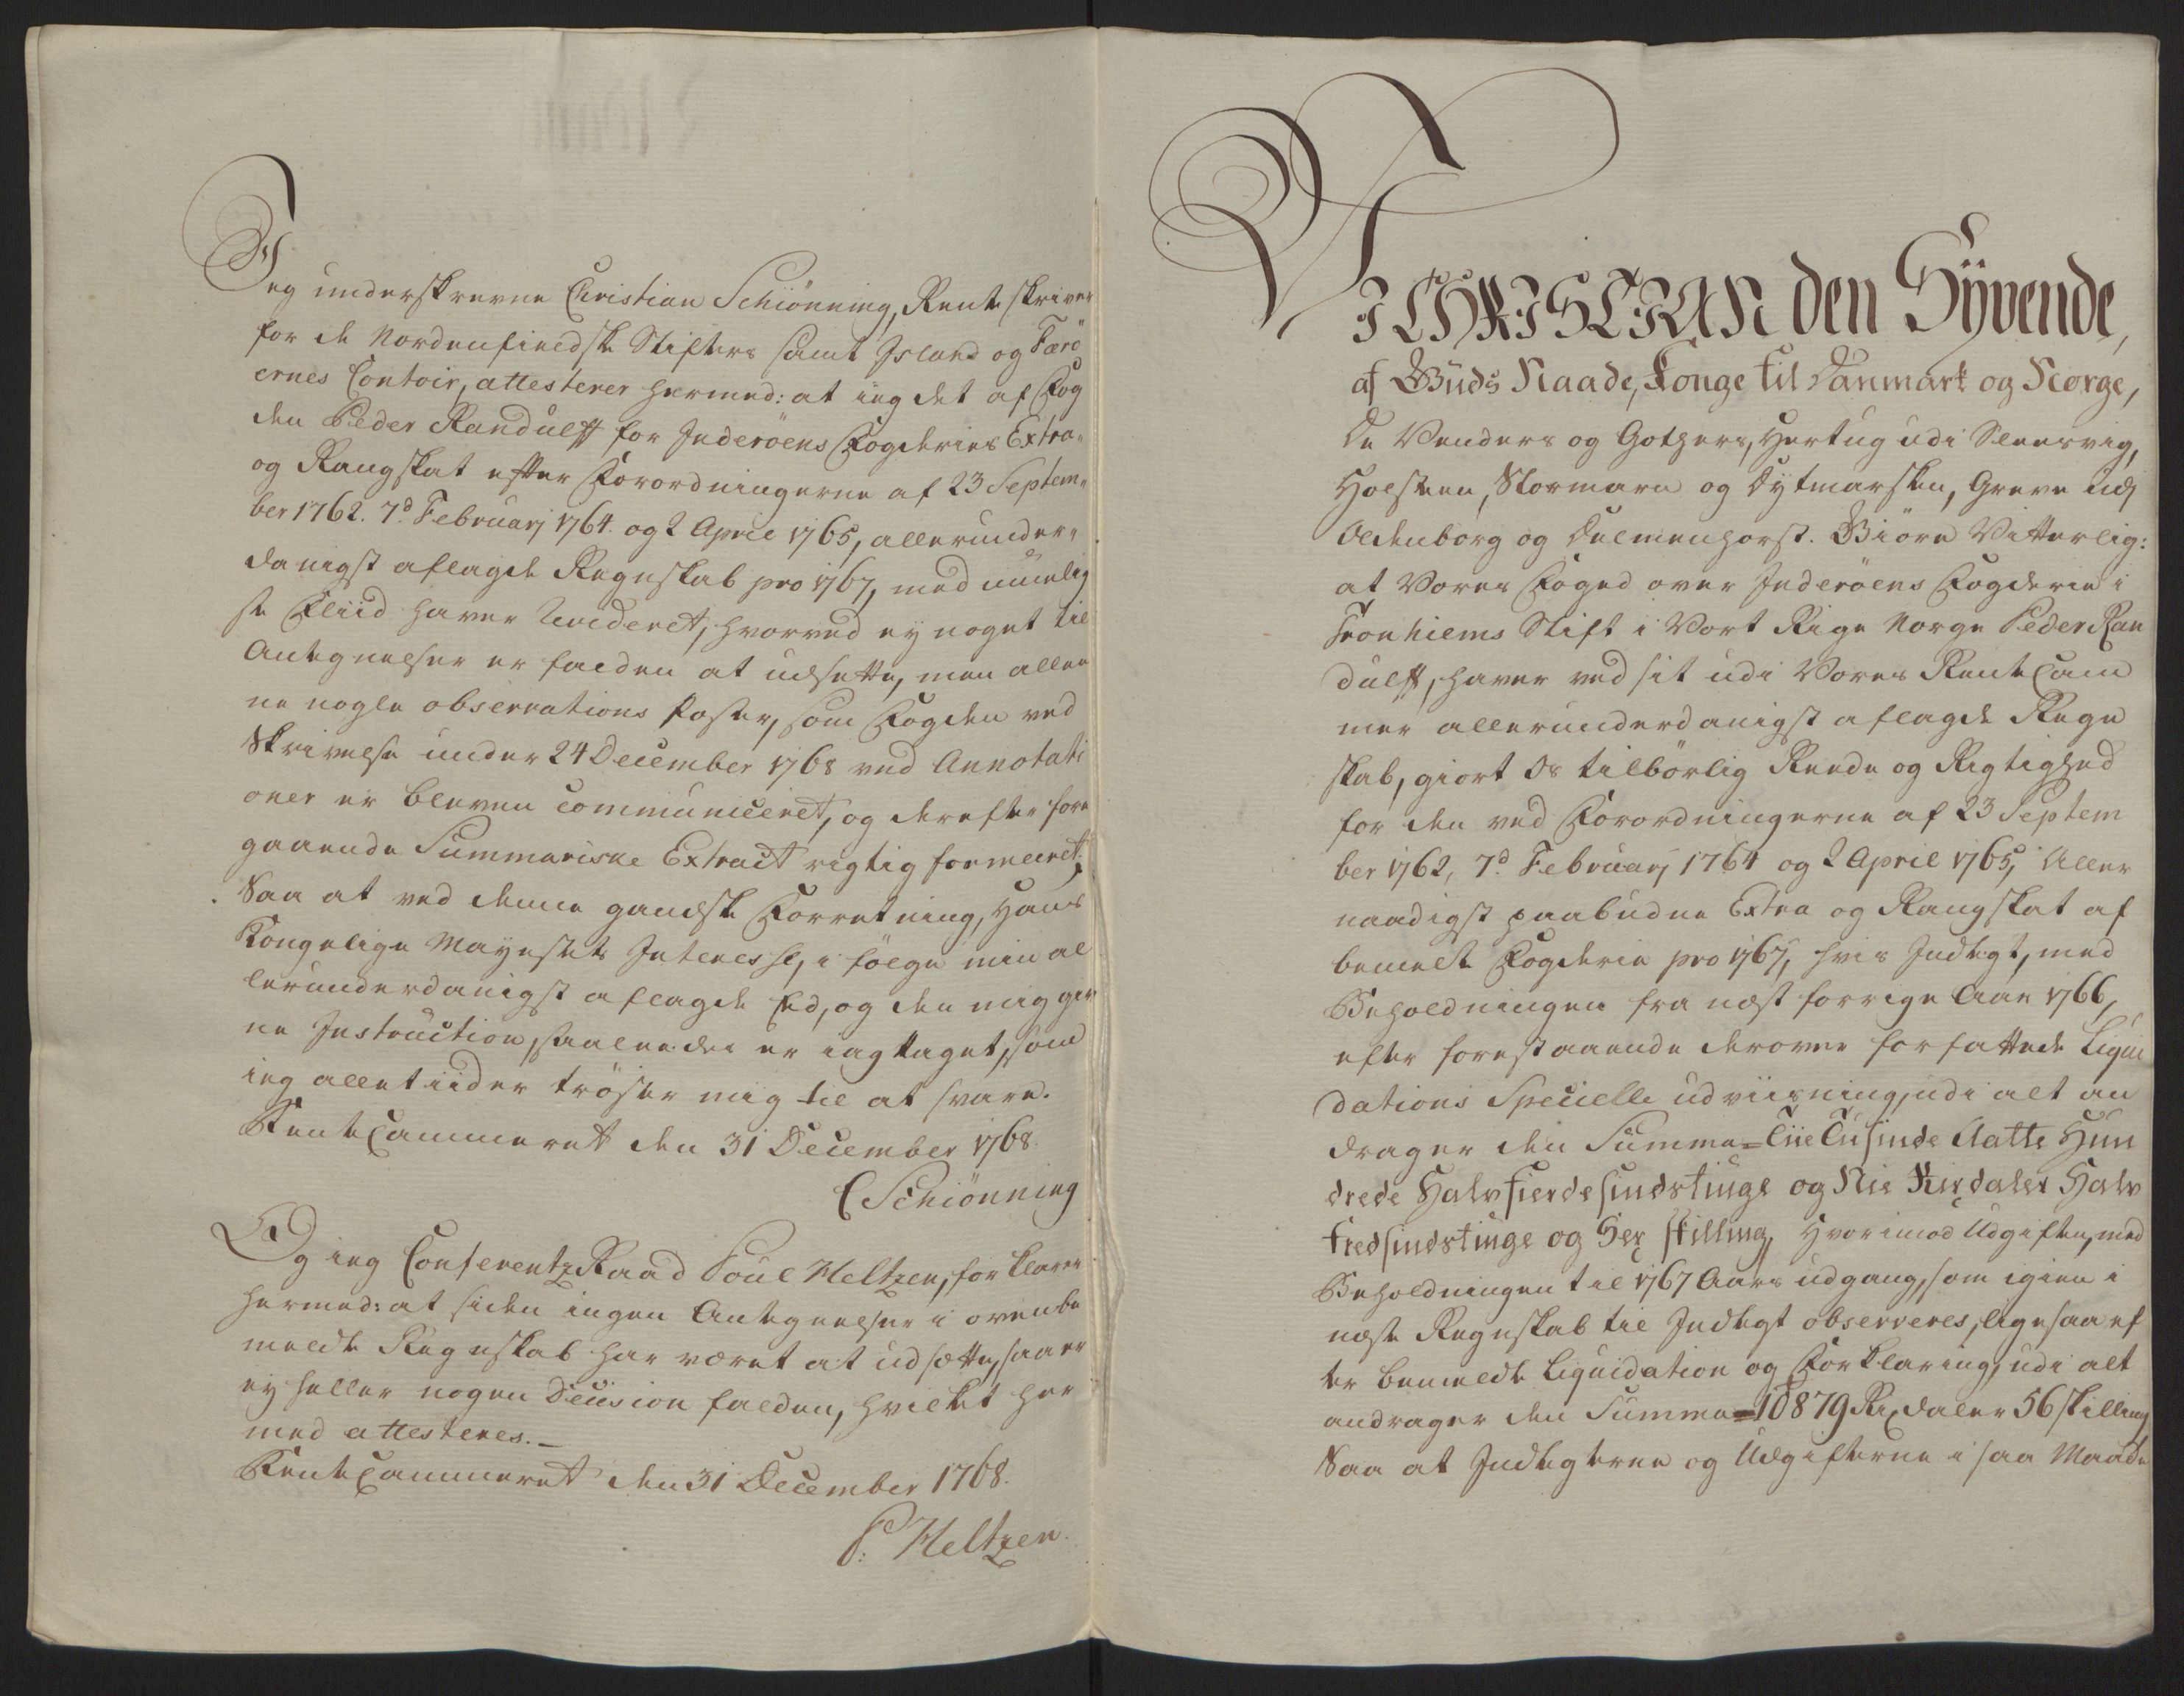 Jeg underskrevne Christian Schiönning, Rente skriver
for de Nordenfieldske Stifters samt Island og Færö
ernes Contoir, attesterer hermed: at ieg det af Fog
den Peder Randulff for Inderöens Fogderies Extra-
og Rangskat efter Forordningerne af 23 Septem-
ber 1762. 7d Februarj 1764. og 2 April 1765, allerunder-
danigst aflagde Regnskab pro 1767, med muelig
ste Fliid haver Revideret, hvorved ey noget til
Antegnelser er falden at udsette, men allee
ne nogle observations Poster, som Fogden ved
Skrivelse under 24 December 1768 ved Annotati
oner er bleven communiceret, og derefter fore
gaaende Summariske Extract rigtig formeeret;
Saa at ved denne gandske Forretning, Hans
Kongelige Mayestets Interesse, i fölge min al
lerunderdanigst aflagde Eed, og den mig giv
ne Instruction, saaleedes er iagttaget, som
ieg alletiider tröster mig til at svare.
RenteCammeret den 31 December 1768.
C Schiönning
Og ieg ConferentzRaad Poul Heltzen, forklarer
hermed: at siden ingen Antegnelser i ovenbe
meldte Regnskab har været at udsætte, saa er
ey heller nogen Decision falden, hvilket her
med attesteres.-
RenteCammeret den 31 December 1768.
P: Heltzen.
VI CHRISTIAN den Syvende,
af Guds Naade, Konge til Danmark og Norge,
De Venders og Gothers, Hertug udi Slesvig,
Holsteen, Stormarn og Dytmarsken, Greve udj
Oldenborg og Delmenhorst. Giöre Vitterlig:
at Vores Foged over Inderöens Fogderie i
Tronhiems Stift i Vort Rige Norge Peder Ran
dulff, haver ved sit udi Vores RenteCam
mer allerunderdanigst aflagde Regn
skab, giort Os tilbörlig Reede og Rigtighed
for den ved Forordningerne af 23 Septem
ber 1762, 7d Februarj 1764 og 2 April 1765, Aller
naadigst paabudne Extra og Rangskat af
bemelte Fogderie pro 1767, hvis Indtegt, med
Beholdningen fra næst forrige Aar 1766,
efter forestaaende derover forfattede Liqui
dations Specielle udviisning, udi alt an
drager den Summa = Tiie Tusinde Aatte Hun
drede Halvfierdesindstinge og Nie Rixdaler Halv
tredsindstinge og Sex skilling, Hvorimod Udgiften, med
Beholdningen til 1767 Aars udgang, som igien i
næste Regnskab til Indtegt observeres, ligesaa ef
ter bemeldte Liquidation og Forklaring, udi alt
andrager den Summa = 10879 Rixdaler 56 skilling
Saa at Indtegterne og Udgifterne i saa Maade